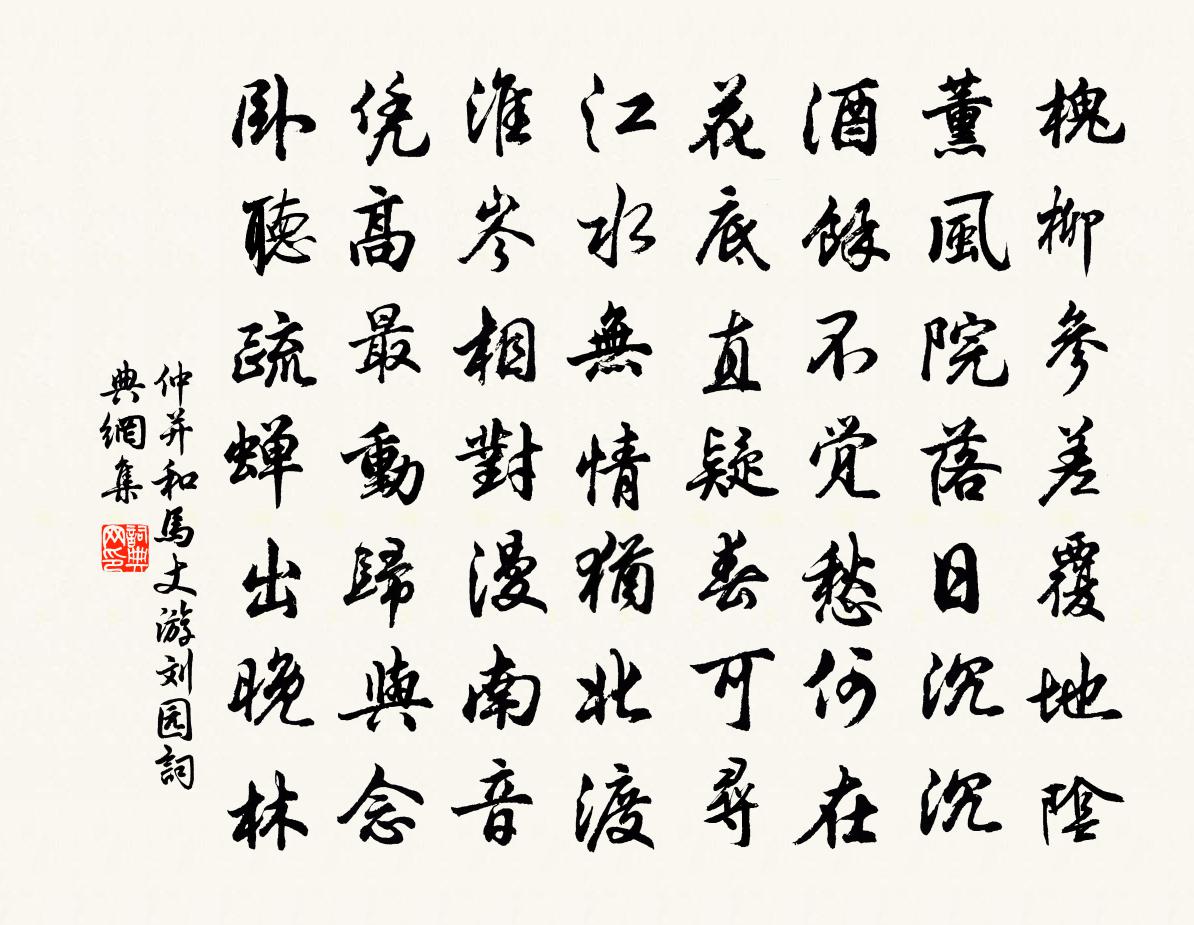 槐柳參差覆地陰
薰風院落日沉沉
酒餘不覺愁何在
花底直疑春可尋
江水無情猶北渡
淮岑相對漫南音
凭高最動歸與念
卧聽疏蟬出晚林
仲并和馬丈游刘园詞
典網集
詞典网印